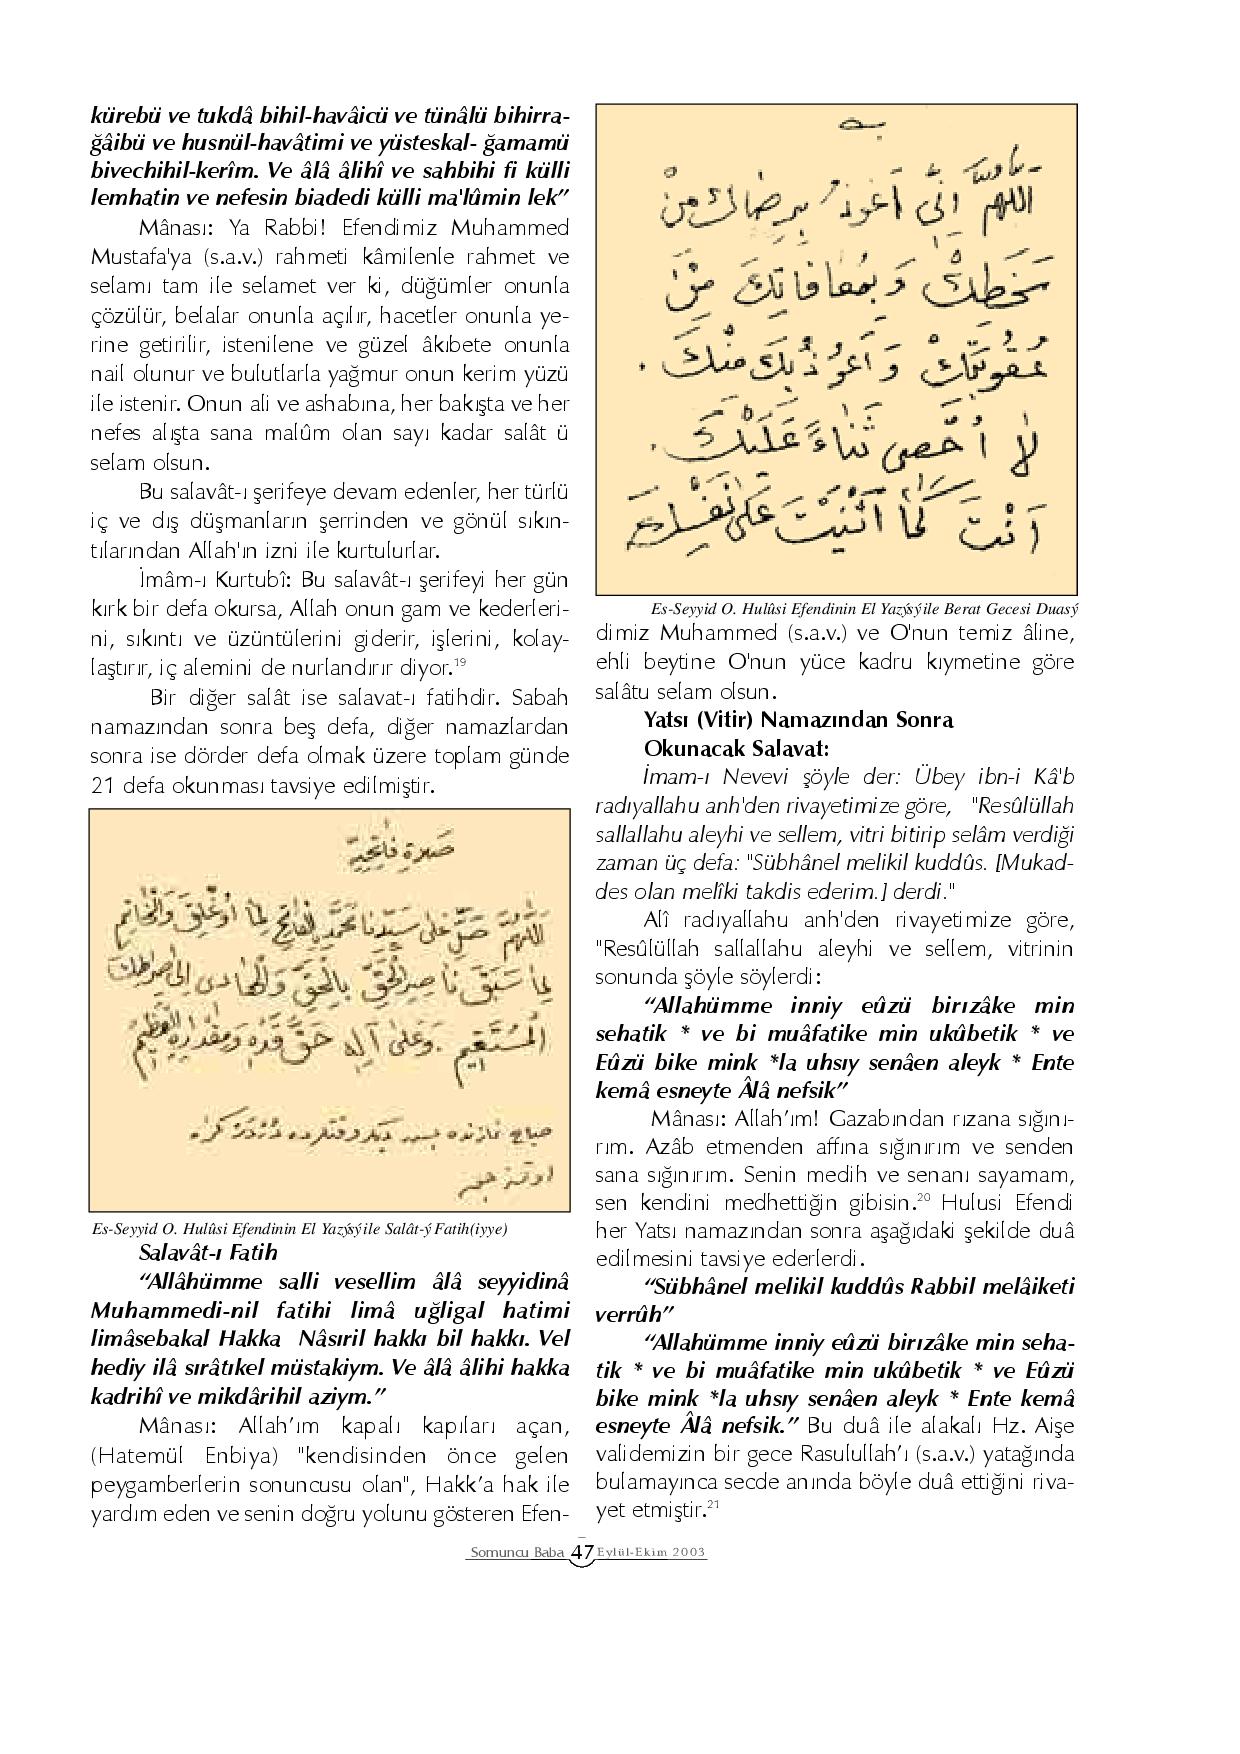 kürebü ve tukdâ bihil-havâicü ve tünâlü bihirra-
ğâibü ve husnül-havâtimi ve yüsteskal- ğamamü
bivechihil-kerîm. Ve âlâ âlihî ve sahbihi fi külli
lemhatin ve nefesin biadedi külli ma'lûmin lek”
Mânası: Ya Rabbi! Efendimiz Muhammed
Mustafa'ya (s.a.v.) rahmeti kâmilenle rahmet ve
selamı tam ile selamet ver ki, düğümler onunla
çözülür, belalar onunla açılır, hacetler onunla ye-
rine getirilir, istenilene ve güzel âkıbete onunla
nail olunur ve bulutlarla yağmur onun kerim yüzü
ile istenir. Onun ali ve ashabına, her bakışta ve her
nefes alışta sana malûm olan sayı kadar salât ü
selam olsun.
Bu salavât-ı şerifeye devam edenler, her türlü
iç ve dış düşmanların şerrinden ve gönül sıkın-
tılarından Allah'ın izni ile kurtulurlar.
İmâm-ı Kurtubî: Bu salavât-ı şerifeyi her gün
kırk bir defa okursa, Allah onun gam ve kederleri-
ni, sıkıntı ve üzüntülerini giderir, işlerini, kolay-
laştırır, iç alemini de nurlandırır diyor.19
Bir diğer salât ise salavat-ı fatihdir. Sabah
namazından sonra beş defa, diğer namazlardan
sonra ise dörder defa olmak üzere toplam günde
21 defa okunması tavsiye edilmiştir.
صَلاةِ فَاتِحِيَّه
اَللّٰهُمَّ صَلِّ عَلٰى سَيِّدِنَا مُحَمَّدٍ الْفَاتِحِ لِمَا اُغْلِقَ وَالْخَاتِمِ
لِمَا سَبَقَ نَاصِرِ الْحَقِّ بِالْحَقِّ وَالْهَادِى اِلٰى صِرَاطِكَ
الْمُسْتَقِيمِ . وَعَلٰى اٰلِهِ حَقَّ قَدْرِهِ وَمِقْدَارِهِ الْعَظِيمِ
صباح نمازنده
Es-Seyyid O. Hulûsî Efendinin El Yazýsý ile Salât-ý Fatih(iyye)
Salavât-ı Fatih
“Allâhümme salli vesellim âlâ seyyidinâ
Muhammedi-nil fatihi limâ uğligal hatimi
limâsebakal Hakka Nâsıril hakkı bil hakkı. Vel
hediy ilâ sırâtıkel müstakiym. Ve âlâ âlihi hakka
kadrihî ve mikdârihil aziym.”
Mânası: Allah’ım kapalı kapıları açan,
(Hatemül Enbiya) "kendisinden önce gelen
peygamberlerin sonuncusu olan", Hakk’a hak ile
yardım eden ve senin doğru yolunu gösteren Efen-
اَللّٰهُمَّ اِنِّى اَعُوذُ بِرِضَاكَ مِنْ
سَخَطِكَ وَبِمُعَافَاتِكَ مِنْ
عُقُوبَتِكَ وَاَعُوذُ بِكَ مِنْكَ .
لَا اُحْصِى ثَنَاءً عَلَيْكَ .
اَنْتَ كَمَا اَثْنَيْتَ عَلٰى نَفْسِكَ
Es-Seyyid O. Hulûsi Efendinin El Yazýsý ile Berat Gecesi Duasý
dimiz Muhammed (s.a.v.) ve O'nun temiz âline,
ehli beytine O'nun yüce kadru kıymetine göre
salâtu selam olsun.
Yatsı (Vitir) Namazından Sonra
Okunacak Salavat:
İmam-ı Nevevi şöyle der: Übey ibn-i Kâ'b
radıyallahu anh'den rivayetimize göre, "Resûlüllah
sallallahu aleyhi ve sellem, vitri bitirip selâm verdiği
zaman üç defa: "Sübhânel melikil kuddûs. [Mukad-
des olan melîki takdis ederim.] derdi."
Alî radıyallahu anh'den rivayetimize göre,
"Resûlüllah sallallahu aleyhi ve sellem, vitrinin
sonunda şöyle söylerdi:
“Allahümme inniy eûzü birızâke min
sehatik * ve bi muâfatike min ukûbetik * ve
Eûzü bike mink *la uhsıy senâen aleyk * Ente
kemâ esneyte Âlâ nefsik”
Mânası: Allah’ım! Gazabından rızana sığını-
rım. Azâb etmenden affına sığınırım ve senden
sana sığınırım. Senin medih ve senanı sayamam,
sen kendini medhettiğin gibisin.20 Hulusi Efendi
her Yatsı namazından sonra aşağıdaki şekilde duâ
edilmesini tavsiye ederlerdi.
“Sübhânel melikil kuddûs Rabbil melâiketi
verrûh”
“Allahümme inniy eûzü birızâke min seha-
tik * ve bi muâfatike min ukûbetik * ve Eûzü
bike mink *la uhsıy senâen aleyk * Ente kemâ
esneyte Âlâ nefsik.” Bu duâ ile alakalı Hz. Aişe
validemizin bir gece Rasulullah’ı (s.a.v.) yatağında
bulamayınca secde anında böyle duâ ettiğini riva-
yet etmiştir.21
Somuncu Baba 47 Eylül-Ekim 2003